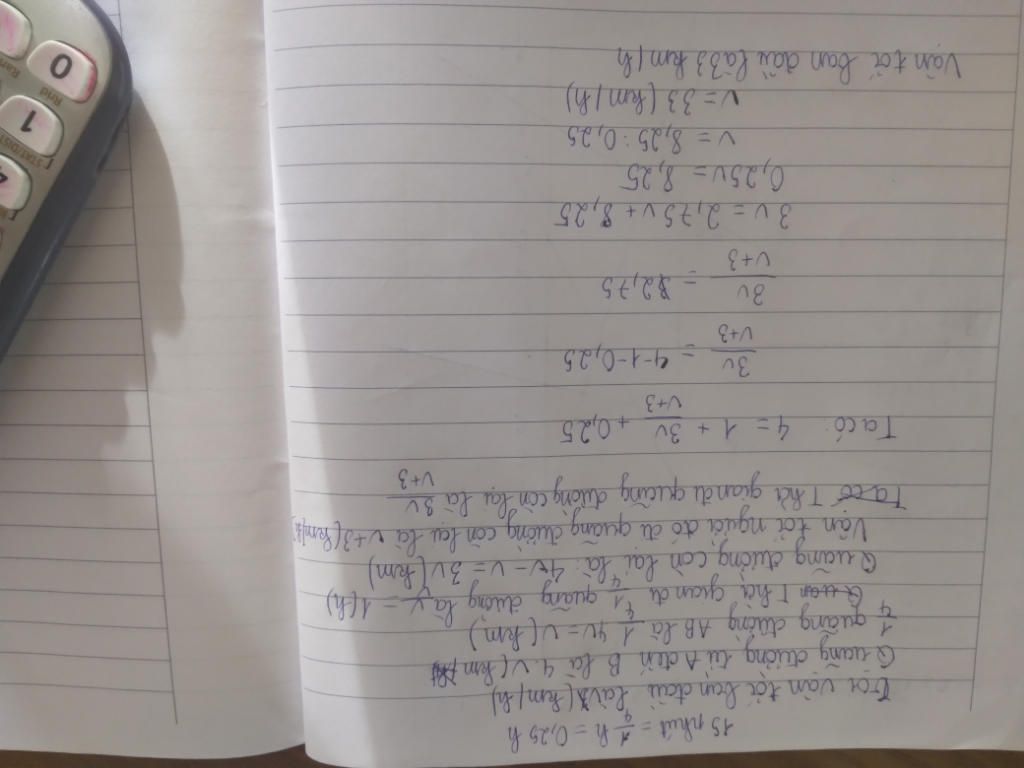 15 phút = 1/4 h = 0,25 h
Gọi vận tốc ban đầu là v (km/h)
Quãng đường từ A đến B là 4v (km)
1/4 quãng đường AB là 1/4 4v = v (km)
Thời gian đi 1/4 quãng đường là v/v = 1 (h)
Quãng đường còn lại là: 4v - v = 3v (km)
Vận tốc người đó đi quãng đường còn lại là v+3 (km/h)
Ta có Thời gian đi quãng đường còn lại là 3v/v+3
Ta có: 4 = 1 + 3v/v+3 + 0,25
3v/v+3 = 4-1-0,25
3v/v+3 = 2,75
3v = 2,75v + 8,25
0,25v = 8,25
v = 8,25 : 0,25
v = 33 (km/h)
Vận tốc ban đầu là 33 km/h
0
Ran
Rnd
1
STAT/DIST
4